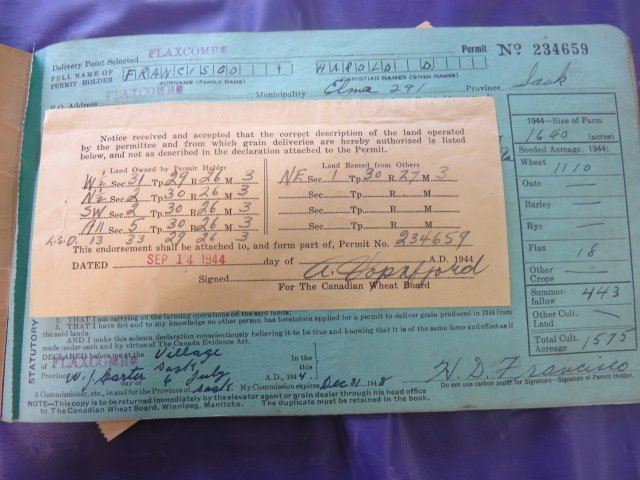 Delivery Point Selected FLAXCOMBE Permit No 234659
FULL NAME OF PERMIT HOLDER FRANCISCO HAROLD D
SURNAME (FAMILY NAME) CHRISTIAN NAMES (GIVEN NAMES)
P.O. Address FLAXCOMBE Municipality Elma 291 Province Sask
Notice received and accepted that the correct description of the land operated
by the permittee and from which grain deliveries are hereby authorized is listed
below, and not as described in the declaration attached to the Permit.
Land Owned by Permit Holder
W½ Sec. 31 Tp. 29 R. 26 M. 3
N½ Sec. 2 Tp. 30 R. 26 M. 3
SW Sec. 2 Tp. 30 R. 26 M. 3
All Sec. 5 Tp. 30 R. 26 M. 3
L.S.D. 13 33 29 26 3
Land Rented from Others
NE Sec. 1 Tp. 30 R. 27 M. 3
Sec. Tp. R. M.
Sec. Tp. R. M.
Sec. Tp. R. M.
This endorsement shall be attached to, and form part of, Permit No. 234659
DATED SEP 14 1944 day of A.D. 1944
Signed
For The Canadian Wheat Board
1944—Size of Farm
1640 (acres)
Seeded Acreage, 1944:
Wheat 1110
Oats —
Barley —
Rye —
Flax 18
Other Crops —
Summer-fallow 443
Other Cult. Land —
Total Cult. Acreage 1575
STATUTORY
2. THAT I am carrying on the farming operations on the said lands.
3. THAT I have not and to my knowledge no other person has heretofore applied for a permit to deliver grain produced in 1944 from
the said lands.
AND I make this solemn declaration conscientiously believing it to be true and knowing that it is of the same force and effect as if
made under oath and by virtue of The Canada Evidence Act.
DECLARED before me at the Village In the
FLAXCOMBE this
Province Sask
day of 6 July A.D., 1944 H. D. Francisco
Do not use carbon paper for Signature—Signature of Permit Holder.
A Commissioner, etc., in and for the Province of Sask My Commission expires Dec 31 1948
NOTE—This copy is to be returned immediately by the elevator agent or grain dealer through his head office
to The Canadian Wheat Board, Winnipeg, Manitoba. The duplicate must be retained in the book.